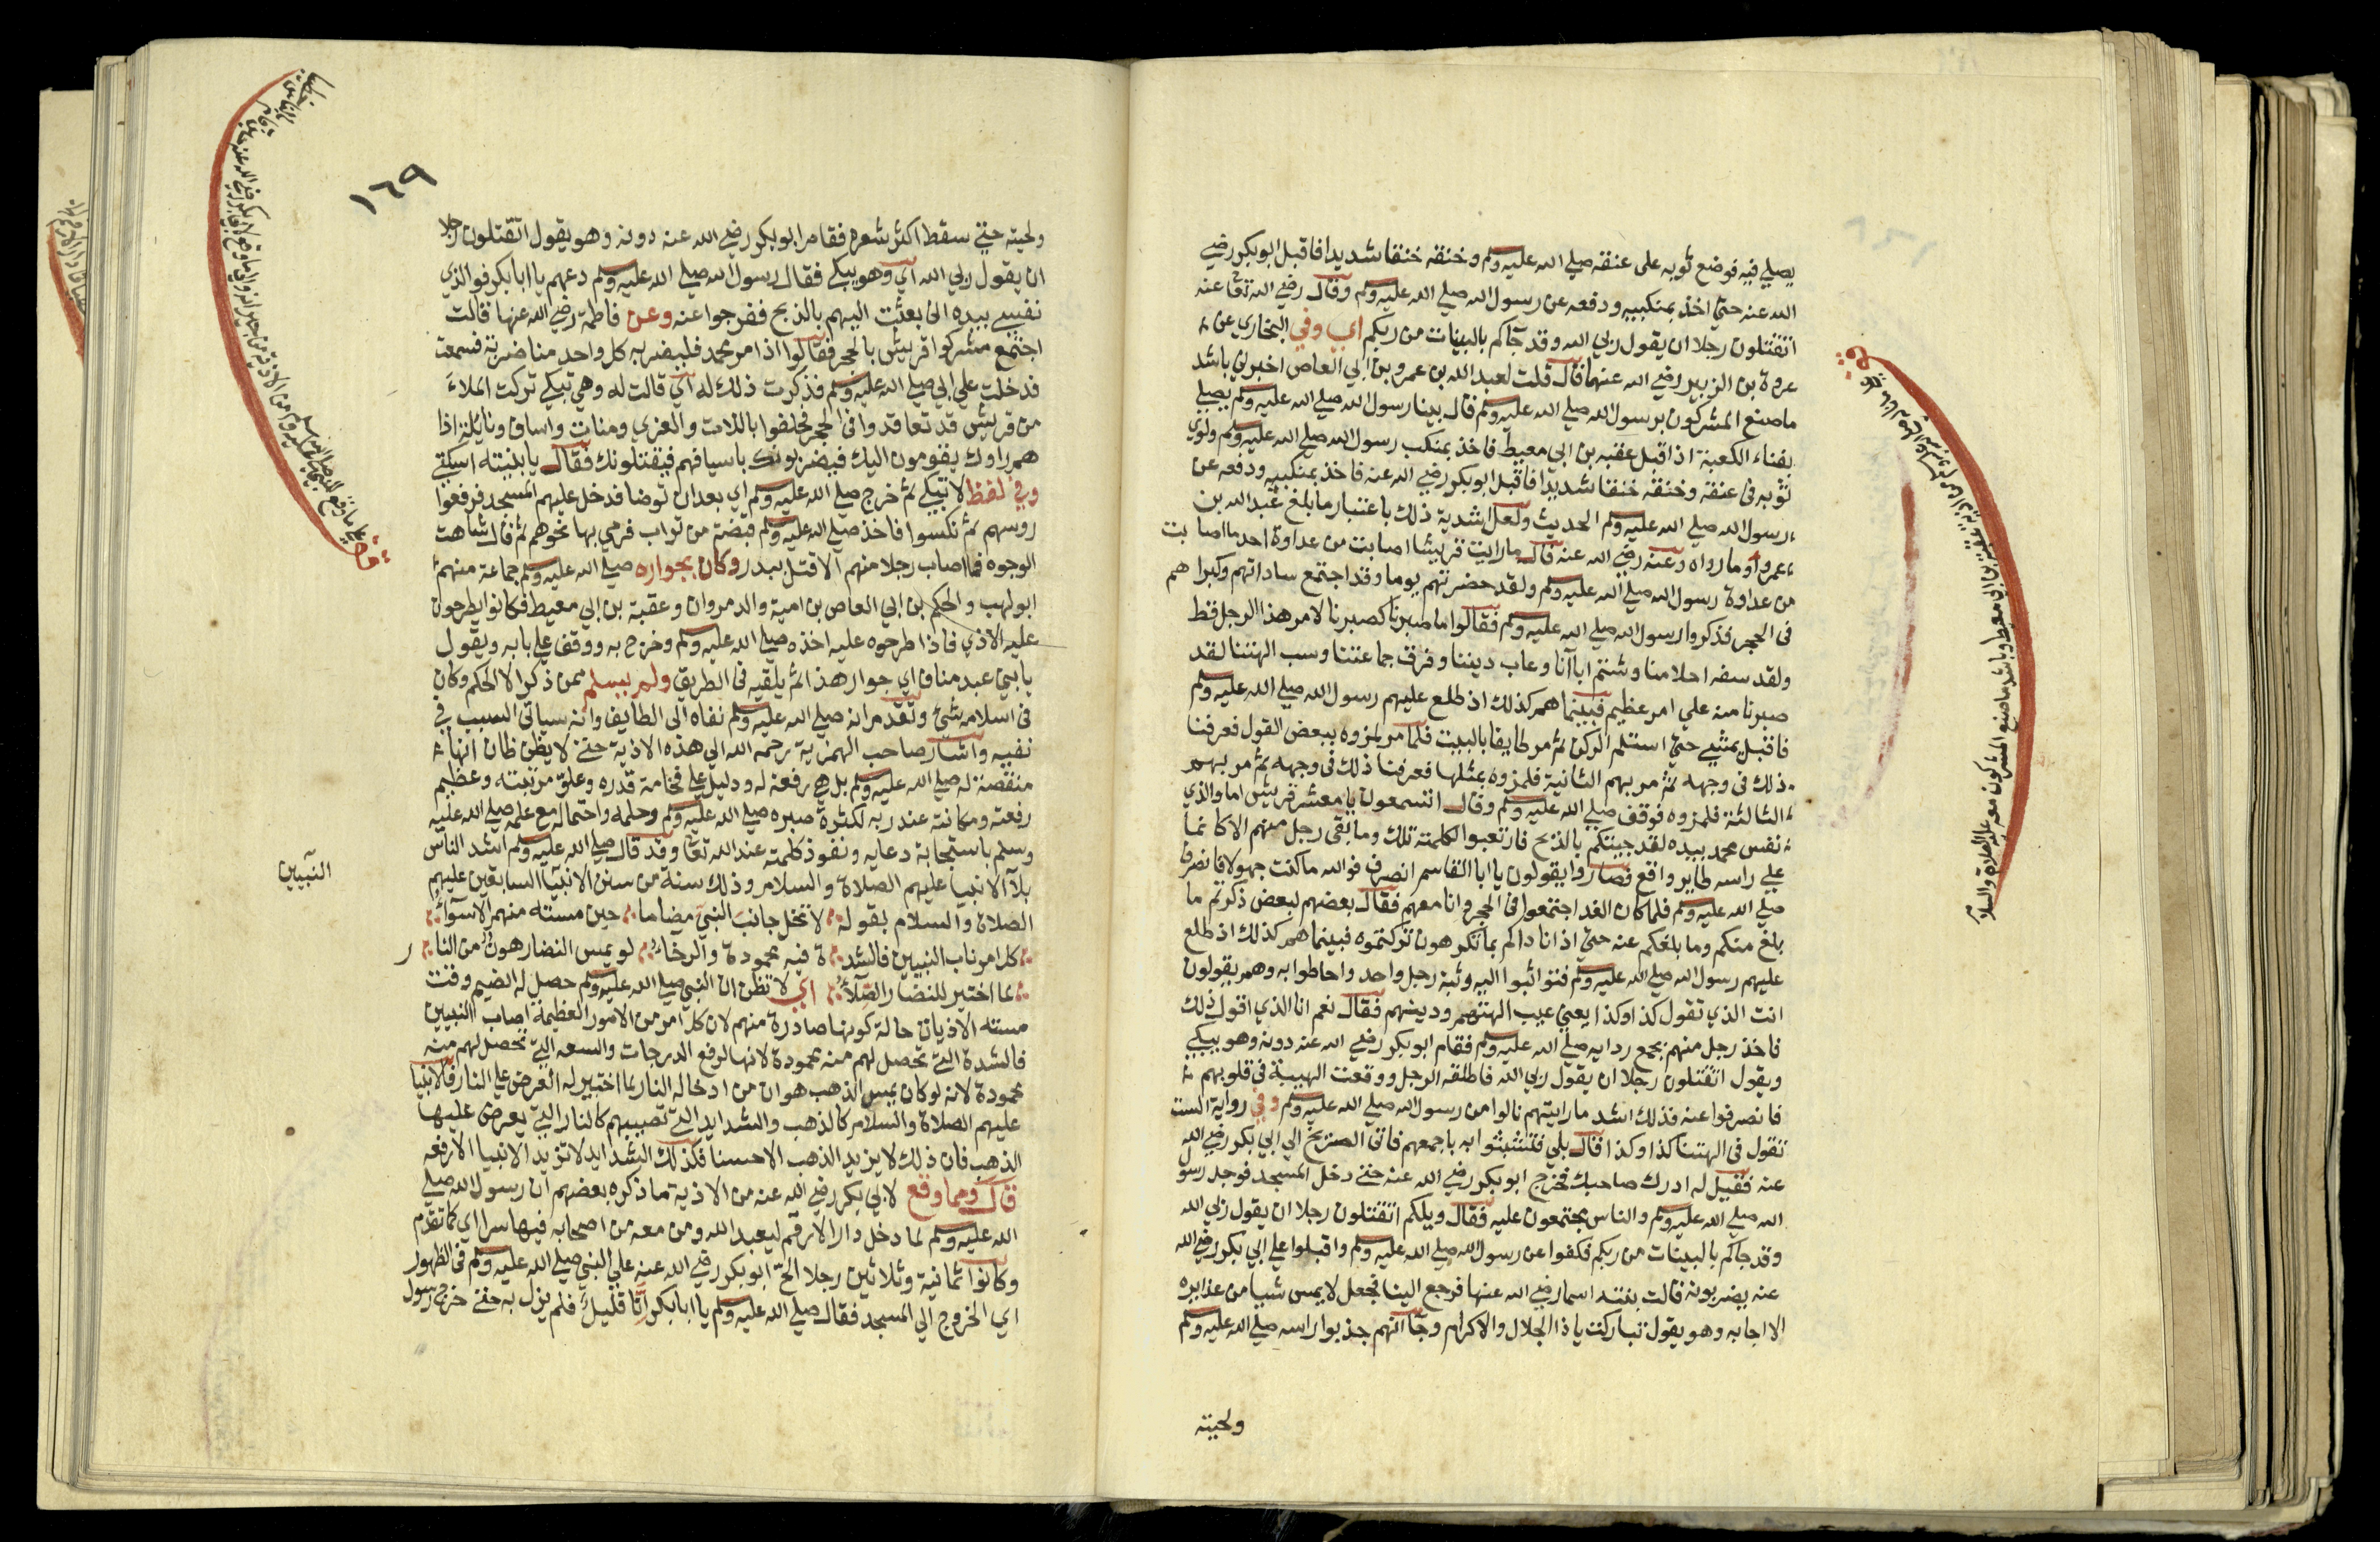 يصلي فيه فوضع ثوبه على عنقه صلى الله عليه وسلم وخنقه خنقا شديدا فاقبل ابو بكر رضي
الله عنه حتى اخذ بمنكبيه ودفعه عن رسول الله صلى الله عليه وسلم وقال رضي الله تعا عنه
اتقتلون رجلا ان يقول ربي الله وقد جآكم بالبينات من ربكم اي وفي البخاري عن
عروة بن الزبير رضي الله عنهما قال قلت لعبد الله بن عمرو بن ابي العاص اخبرني باشد
ما صنع المشركون برسول الله صلى الله عليه وسلم قال بينا رسول الله صلى الله عليه وسلم يصلي
بفناء الكعبة اذ اقبل عقبه بن ابي معيط فاخذ بمنكب رسول الله صلى الله عليه وسلم ولوي
ثوبه في عنقه وخنقه خنقا شديدا فاقبل ابو بكر رضي الله عنه فاخذ بمنكبيه ودفعه عن
رسول الله صلى الله عليه وسلم الحديث ولعل اشدية ذلك باعتبار ما بلغ عبد الله بن
عمرو او ما رواه وعنه رضي الله عنه قال ما رايت قريشا اصابت من عداوة احد ما اصابت
من عداوة رسول الله صلى الله عليه وسلم ولقد حضرتهم يوما وقد اجتمع ساداتهم وكبراهم
في الحجر فذكروا رسول الله صلى الله عليه وسلم فقالوا ما صبرنا كصبرنا لامر هذا الرجل قط
ولقد سفه احلامنا وشتم اباآنا وعاب ديننا وفرق جماعتنا وسب الهتنا لقد
صبرنا منه علي امر عظيم فبينما هم كذلك اذ طلع عليهم رسول الله صلى الله عليه وسلم
فاقبل يمشي حتى استلم الركن ثم مر طايفا بالبيت فلما مر لمزوه ببعض القول فعرفنا
ذلك في وجهه ثم مر بهم الثانية فلمزوه بمثلها فعرفنا ذلك في وجهه ثم مر بهم
الثالثة فلمزوه فوقف صلى الله عليه وسلم وقال اتسمعون يا معشر قريش اما والذي
نفس محمد بيده لقد جيتكم بالذبح فارتعبوا لكلمته تلك وما بقي رجل منهم الا كانما
علي راسه طاير واقع فصاروا يقولون يا ابا القاسم انصرف فوالله ما كنت جهولا فانصرف
صلى الله عليه وسلم فلما كان الغد اجتمعوا في الحجر وانا معهم فقال بعضهم لبعض ذكرتم ما
بلغ منكم وما بلغكم عنه حتى اذا ناداكم بما تكرهون تركتموه فبينما هم كذلك اذ طلع
عليهم رسول الله صلى الله عليه وسلم فتواثبوا اليه وثبة رجل واحد واحاطوا به وهم يقولون
انت الذي تقول كذا وكذا يعني عيب الهتهم ودينهم فقال نعم انا الذي اقول ذلك
فاخذ رجل منهم بجمع ردايه صلى الله عليه وسلم فقام ابو بكر رضي الله عنه دونه وهو يبكي
ويقول اتقتلون رجلا ان يقول ربي الله فاطلقه الرجل ووقعت الهيبة في قلوبهم
فانصرفوا عنه فذلك اشد ما رايتهم نالوا من رسول الله صلى الله عليه وسلم وفي رواية الست
تقول في الهتنا كذا وكذا قال بلي فتشبثوا به باجمعهم فاتى الصريخ الي ابي بكر رضي الله
عنه فقيل له ادرك صاحبك فخرج ابو بكر رضي الله عنه حتى دخل المسجد فوجد رسول
الله صلى الله عليه وسلم والناس مجتمعون عليه فقال ويلكم اتقتلون رجلا ان يقول ربي الله
وقد جاكم بالبينات من ربكم فكفوا عن رسول الله صلى الله عليه وسلم واقبلوا علي ابي بكر رضي الله
عنه يضربونه قالت بنته اسما رضي الله عنها فرجع الينا فجعل لا يمس شيا من غدايره
الا اجابه وهو يقول تباركت يا ذا الجلال والاكرام وجآ انهم جذبوا راسه صلى الله عليه وسلم
ولحيته
١٦٩
ولحيته حتى سقط اكثر شعره فقام ابو بكر رضي الله عنه دونه وهو يقول اتقتلون رجلا
ان يقول ربي الله اي وهو يبكي فقال رسول الله صلى الله عليه وسلم دعهم يا ابا بكر فوالذي
نفسي بيده اني بعثت اليهم بالذبح ففرجوا عنه وعن فاطمة رضي الله عنها قالت
اجتمع مشركوا قريش بالحجر فقالوا اذا مر محمد فليضربه كل واحد منا ضربة فسمعت
فدخلت علي ابي صلى الله عليه وسلم فذكرت ذلك له اي قالت له وهي تبكي تركت الملاء
من قريش قد تعاقدوا في الحجر فحلفوا باللات والعزي ومنات واساف ونايلة اذا
هم راوك يقومون اليك فيضربونك باسيافهم فيقتلونك فقال يا بنيته اسكتي
وفي لفظ لا تبكي ثم خرج صلى الله عليه وسلم اي بعد ان توضا فدخل عليهم المسجد فرفعوا
روسهم ثم نكسوا فاخذ صلى الله عليه وسلم قبضة من تراب فرمي بها نحوهم ثم قال شاهت
الوجوه فما اصاب رجلا منهم الا قتل ببدر وكان بجواره صلى الله عليه وسلم جماعة منهم
ابو لهب والحكم بن ابي العاص بن امية والد مروان وعقبة بن ابي معيط فكانوا يطرحون
عليه الاذي فاذا طرحوه عليه اخذه صلى الله عليه وسلم وخرج به ووقف علي بابه ويقول
يا بني عبد مناف اي جوار هذا ثم يلقيه في الطريق ولم يسلم ممن ذكر الا الحكم وكان
في اسلامه شئ وتقدم انه صلى الله عليه وسلم نفاه الى الطايف وانه سياتي السبب في
نفيه واشار صاحب الهمزية رحمه الله الي هذه الاذية حتى لا يظن ظان انها
منقصة له صلى الله عليه وسلم بل هي رفعة له ودليل علي فخامة قدره وعلو مرتبته وعظيم
رفعته ومكانته عند ربه لكثرة صبره صلى الله عليه وسلم وحلمه واحتماله مع علمه صلى الله عليه
وسلم باستجابة دعايه ونفوذ كلمته عند الله تعا وقد قال صلى الله عليه وسلم اشد الناس
بلآ الانبيا عليهم الصلاة والسلام وذلك سنة من سنن الانبيا السابقين عليهم
النبيين
الصلاة والسلام بقوله لا تخل جانب النبي مضاما حين مسته منهم الاسوآء
كل امر ناب النبيين فالشد ة فيه محمودة والرخاء لو يمس النضار هون من النا ر
لما اختير للنضار الصلآء اي لا تظن ان النبي صلى الله عليه وسلم حصل له الضيم وقت
مسته الاذيات حالة كونها صادرة منهم لان كل امر من الامور العظيمة اصاب النبيين
فالشدة التي تحصل لهم منه محمودة لانها لرفع الدرجات والسعه التي تحصل لهم منه
محمودة لانه لو كان يمس الذهب هوان من ادخاله النار لما اختير له العرض علي النار فالانبيا
عليهم الصلاة والسلام كالذهب والشدايد التي تصيبهم كالنار التي يعرض عليها
الذهب فان ذلك لا يزيد الذهب الا حسنا فكذلك الشدايد لا تزيد الانبيا الا رفعه
قال ومما وقع لابي بكر رضي الله عنه من الاذية ما ذكره بعضهم ان رسول الله صلى
الله عليه وسلم لما دخل دار الارقم ليعبد الله ومن معه من اصحابه فيها سرا اي كما تقدم
وكانوا ثمانية وثلاثين رجلا الح ابو بكر رضي الله عنه علي النبي صلى الله عليه وسلم في الظهور
اي الخروج الي المسجد فقال صلى الله عليه وسلم يا ابا بكر انا قليل فلم يزل به حتى خرج رسول